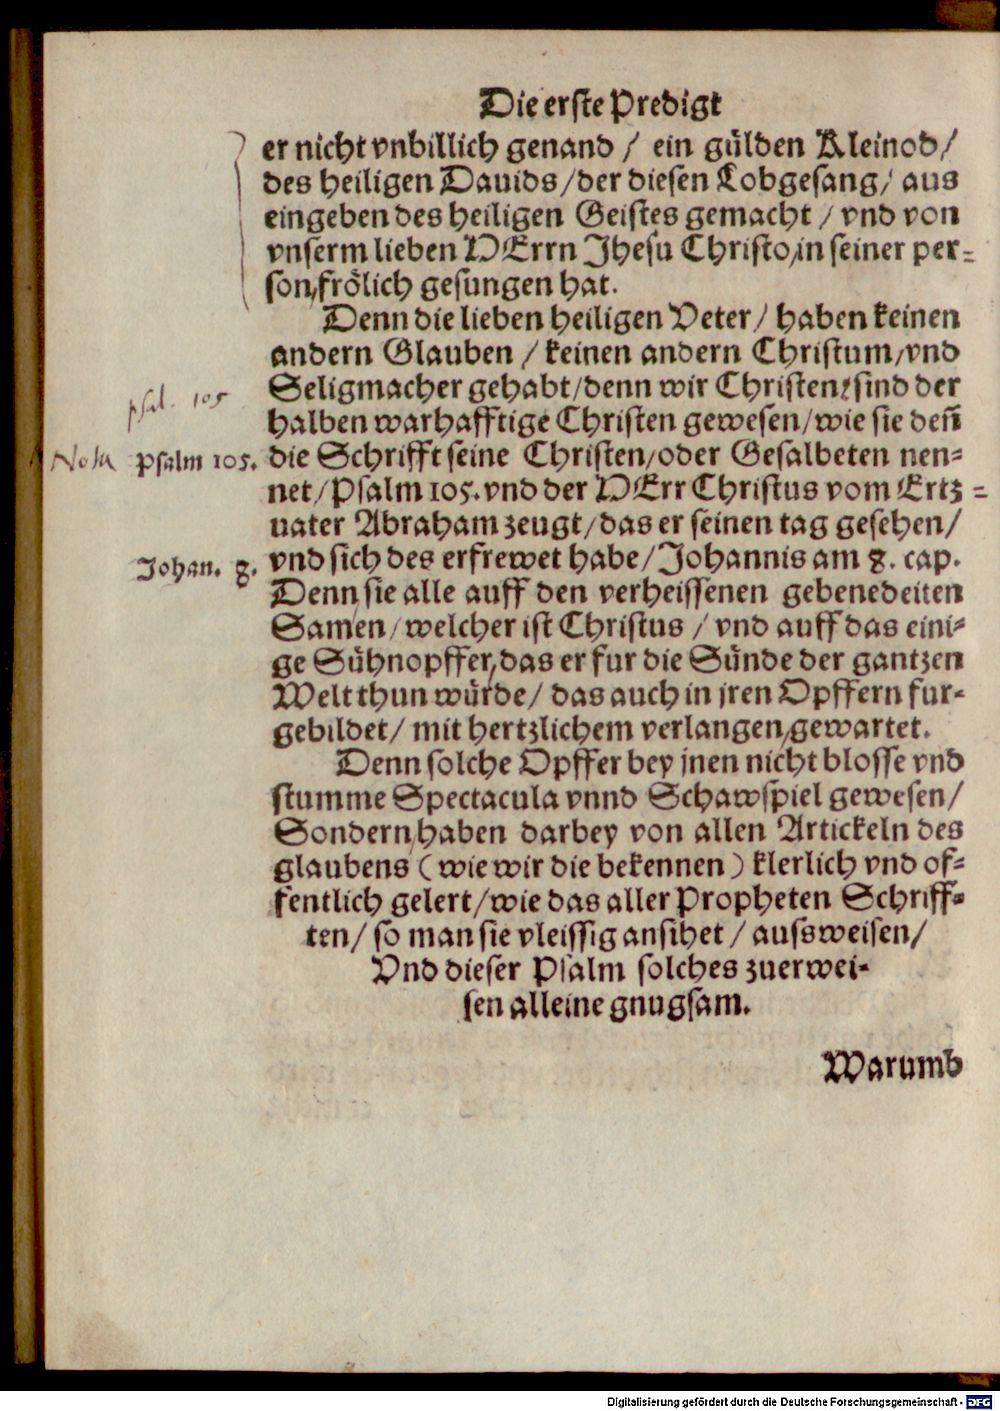 Die erste Predigt
er nicht vnbillich genand / ein gülden Kleinod/
des heiligen Dauids/der diesen Lobgesang/ aus
eingeben des heiligen Geistes gemacht / vnd von
vnserm lieben HErrn Jhesu Christo/in seiner per=
son/frölich gesungen hat.
Denn die lieben heiligen Veter/ haben keinen
andern Glauben / keinen andern Christum/vnd
Seligmacher gehabt/denn wir Christen/sind der
psal. 105
halben warhafftige Christen gewesen/wie sie deñ
Nota Psalm 105. die Schrifft seine Christen/oder Gesalbeten nen=
net/Psalm 105. vnd der HErr Christus vom Ertz=
uater Abraham zeugt/das er seinen tag gesehen/
Johan. 8. vnd sich des erfrewet habe/Johannis am 8. cap.
Denn sie alle auff den verheissenen gebenedeiten
Samen/welcher ist Christus / vnd auff das eini=
ge Sühnopffer/das er fur die Sünde der gantzen
Welt thun würde/ das auch in jren Opffern fur=
gebildet/ mit hertzlichem verlangen/gewartet.
Denn solche Opffer bey jnen nicht blosse vnd
stumme Spectacula vnnd Schawspiel gewesen/
Sondern/haben darbey von allen Artickeln des
glaubens ( wie wir die bekennen ) klerlich vnd of=
fentlich gelert/wie das aller Propheten Schriff=
ten/ so man sie vleissig ansihet / aussweisen/
Vnd dieser Psalm solches zuerwei=
sen alleine gnugsam.
Warumb
Digitalisierung gefördert durch die Deutsche Forschungsgemeinschaft - DFG